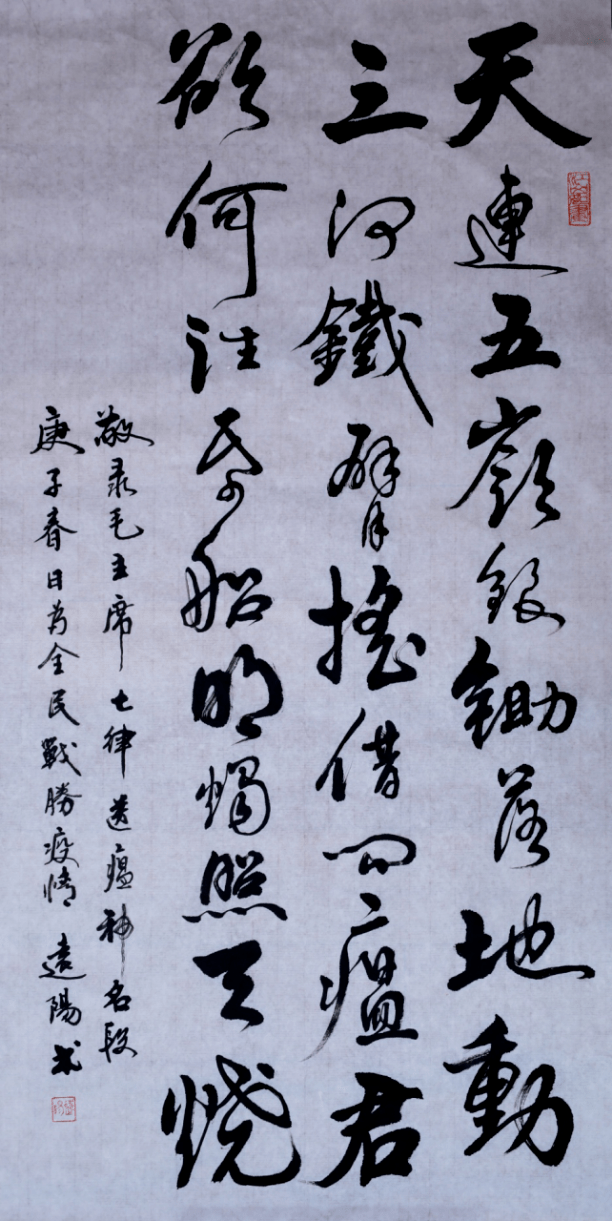 天連五嶺銀鋤落地動
三河鐵臂搖借问瘟君
欲何往帋船明燭照天燒
敬录毛主席七律送瘟神名段
庚子春日为全民戰勝疫情 遠陽书